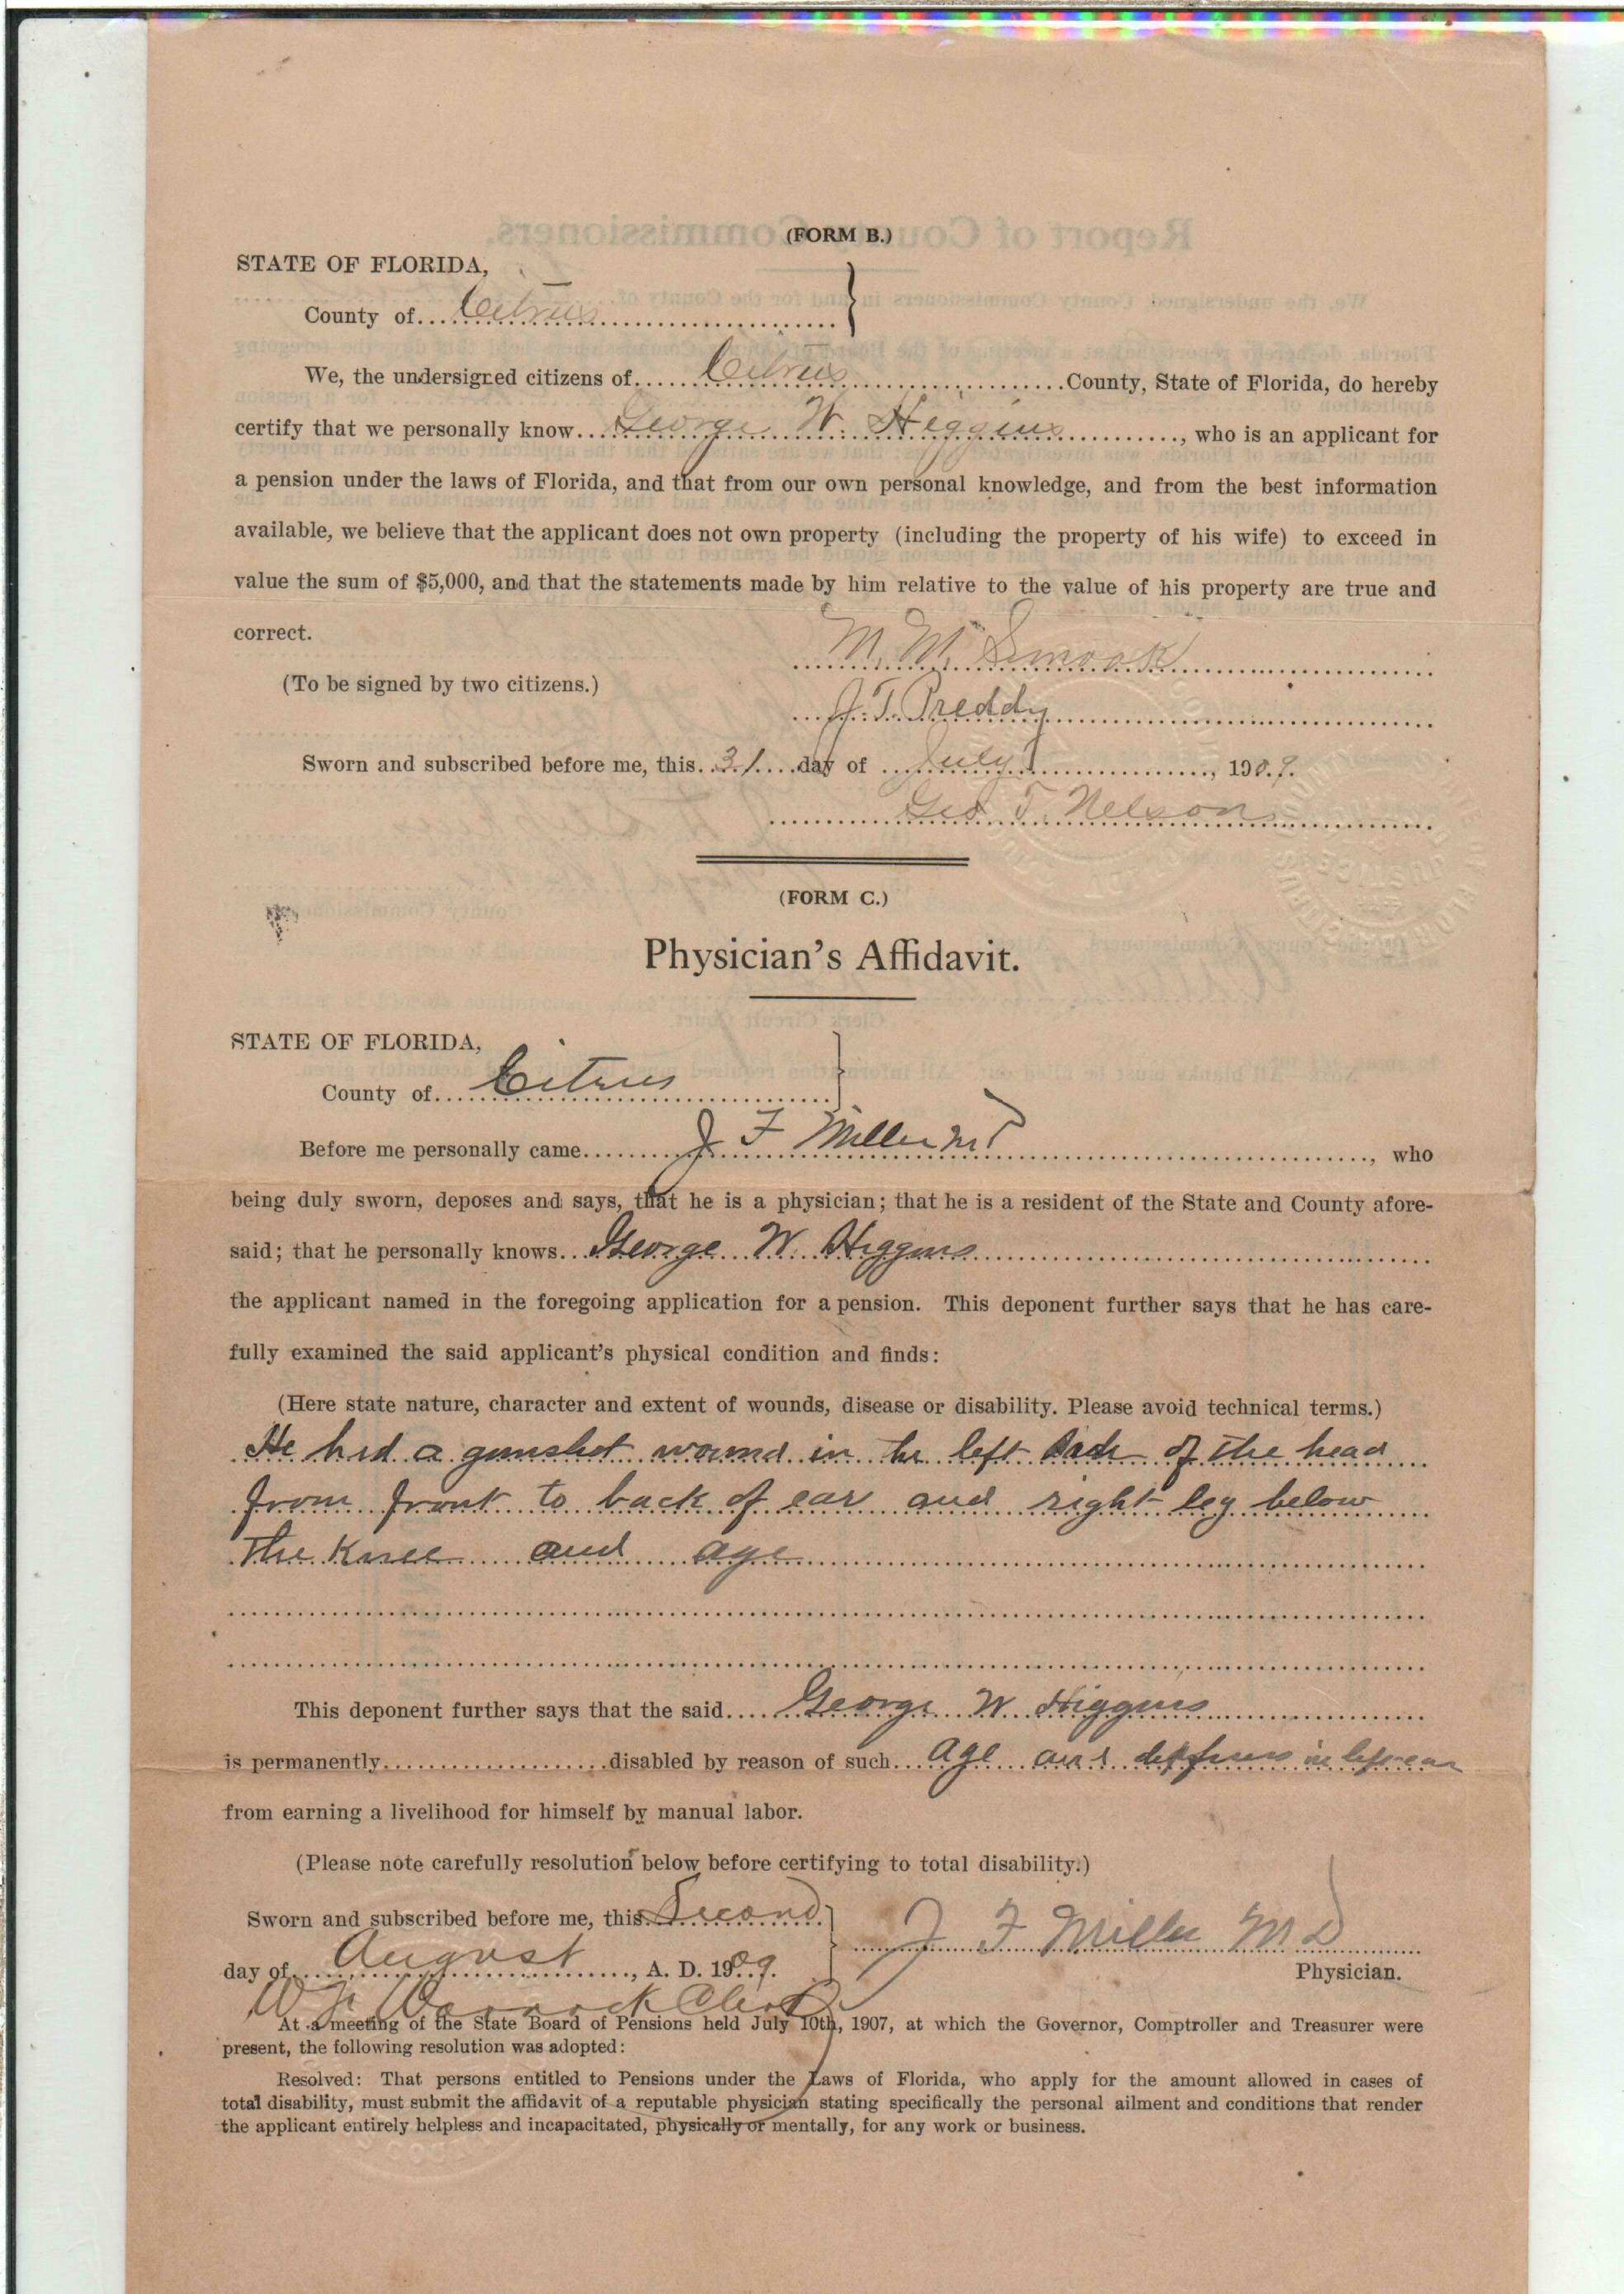 (FORM B.)
STATE OF FLORIDA,
County of Citrus
We, the undersigned citizens of Citrus County, State of Florida, do hereby
certify that we personally know George W. Higgins, who is an applicant for
a pension under the laws of Florida, and that from our own personal knowledge, and from the best information
available, we believe that the applicant does not own property (including the property of his wife) to exceed in
value the sum of $5,000, and that the statements made by him relative to the value of his property are true and
correct.
M. M. Smoak
(To be signed by two citizens.)
J. T. Preddy
Sworn and subscribed before me, this 31 day of July, 1909.
Geo T. Nelson
(FORM C.)
Physician's Affidavit.
STATE OF FLORIDA,
County of Citrus
Before me personally came J F Miller MD, who
being duly sworn, deposes and says, that he is a physician; that he is a resident of the State and County afore-
said; that he personally knows George W. Higgins
the applicant named in the foregoing application for a pension. This deponent further says that he has care-
fully examined the said applicant's physical condition and finds:
(Here state nature, character and extent of wounds, disease or disability. Please avoid technical terms.)
He had a gunshot wound in the left side of the head
from front to back of ear and right leg below
the Knee and age
This deponent further says that the said George W Higgins
is permanently disabled by reason of such age and in left ear
from earning a livelihood for himself by manual labor.
(Please note carefully resolution below before certifying to total disability.)
Sworn and subscribed before me, this Second
J F Miller MD
day of August, A. D. 1909.
Physician.
W. Clerk
At a meeting of the State Board of Pensions held July 10th, 1907, at which the Governor, Comptroller and Treasurer were
present, the following resolution was adopted:
Resolved: That persons entitled to Pensions under the Laws of Florida, who apply for the amount allowed in cases of
total disability, must submit the affidavit of a reputable physician stating specifically the personal ailment and conditions that render
the applicant entirely helpless and incapacitated, physically or mentally, for any work or business.